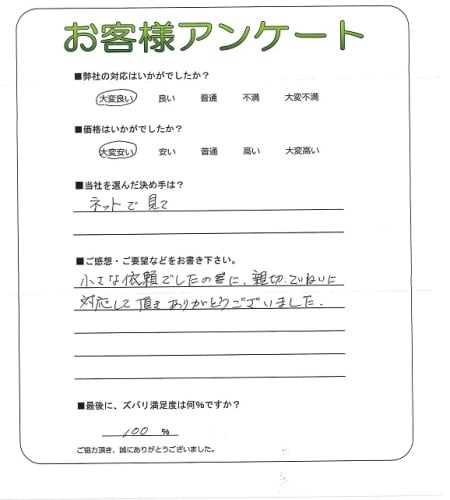 お客様アンケート
■弊社の対応はいかがでしたか?
大変良い 良い 普通 不満 大変不満
■価格はいかがでしたか?
大変安い 安い 普通 高い 大変高い
■当社を選んだ決め手は?
ネットで見て
■ご感想・ご要望などをお書き下さい。
小さな依頼でしたの に、親切、ていねいに
対応して頂きありがとうございました。
■最後に、ズバリ満足度は何%ですか?
100 %
ご協力頂き、誠にありがとうございました。